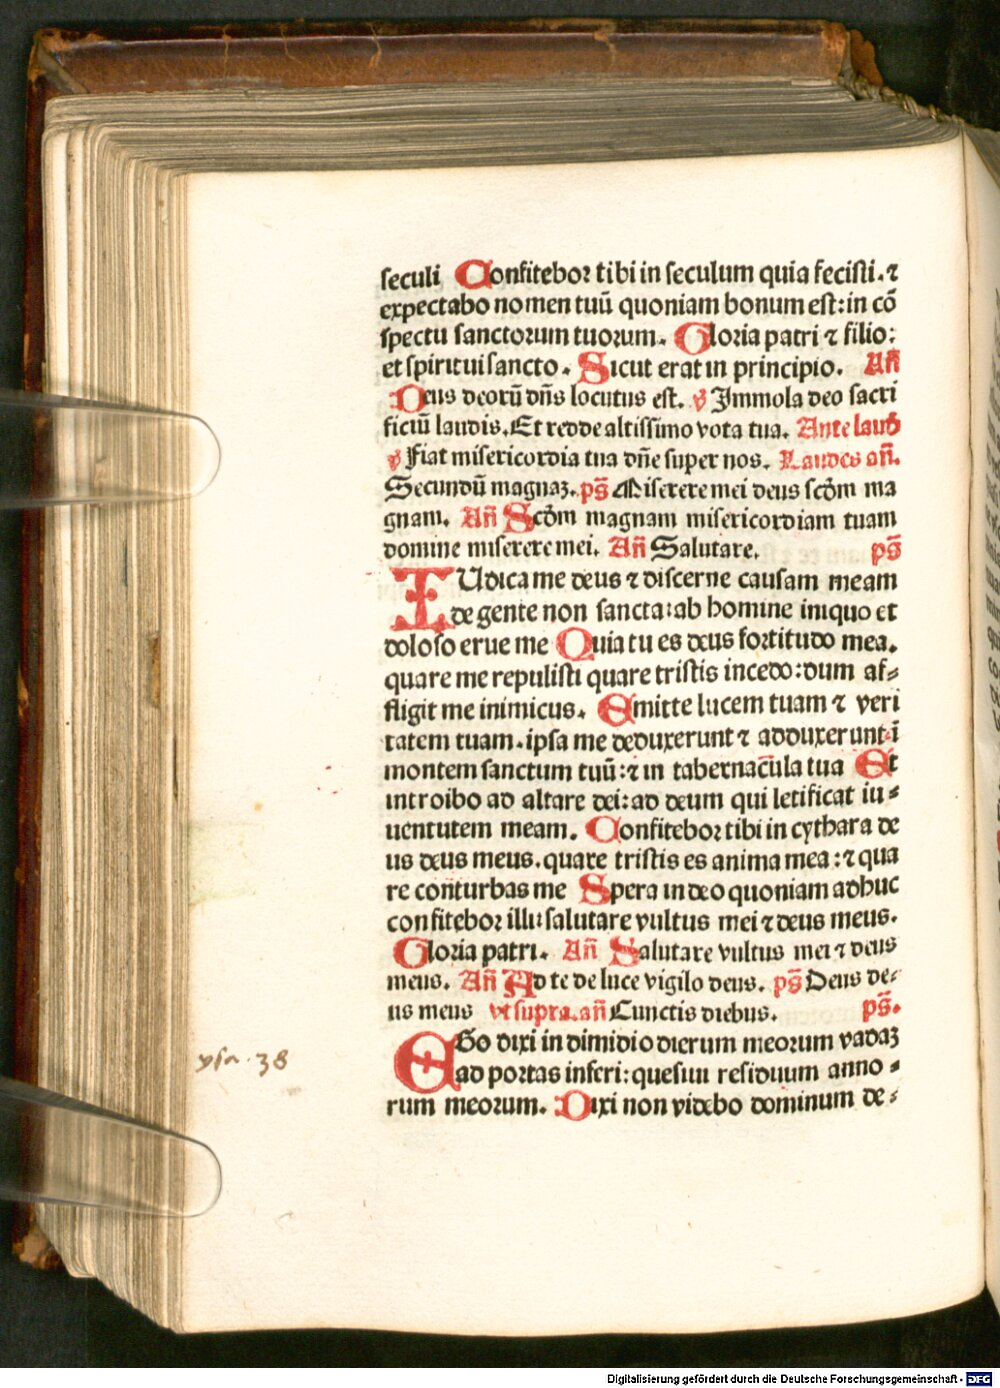 seculi Confitebor tibi in seculum quia fecisti. ⁊
expectabo nomen tuū quoniam bonum est: in cō
spectu sanctorum tuorum. Gloria patri ⁊ filio:
et spiritui sancto. Sicut erat in principio. Añ
Deus deorū dn̄s locutus est. ℣ Immola deo sacri
ficiū laudis. Et redde altissimo vota tua. Ante laud
℣ Fiat misericordia tua dn̄e super nos. Laudes añ.
Secundū magnaʒ. ps̄ Miserere mei deus scd̄m ma
gnam. Añ Scd̄m magnam misericordiam tuam
domine miserere mei. Añ Salutare. ps̄
IUdica me deus ⁊ discerne causam meam
de gente non sancta: ab homine iniquo et
doloso erue me Quia tu es deus fortitudo mea.
quare me repulisti quare tristis incedo: dum af⸗
fligit me inimicus. Emitte lucem tuam ⁊ veri
tatem tuam. ipsa me deduxerunt ⁊ adduxerunt ī
montem sanctum tuū: ⁊ in tabernacula tua Et
introibo ad altare dei: ad deum qui letificat iu⸗
uentutem meam. Confitebor tibi in cythara de
us deus meus. quare tristis es anima mea: ⁊ qua
re conturbas me Spera in deo quoniam adhuc
confitebor illi: salutare vultus mei ⁊ deus meus.
Gloria patri. Añ Salutare vultus mei ⁊ deus
meus. Añ Ad te de luce vigilo deus. ps̄ Deus de⸗
us meus vt supra. añ Cunctis diebus. ps̄.
EGo dixi in dimidio dierum meorum vadaʒ
ad portas inferi: quesiui residuum anno⸗
rum meorum. Dixi non videbo dominum de⸗
ysa. 38
Digitalisierung gefördert durch die Deutsche Forschungsgemeinschaft - DFG